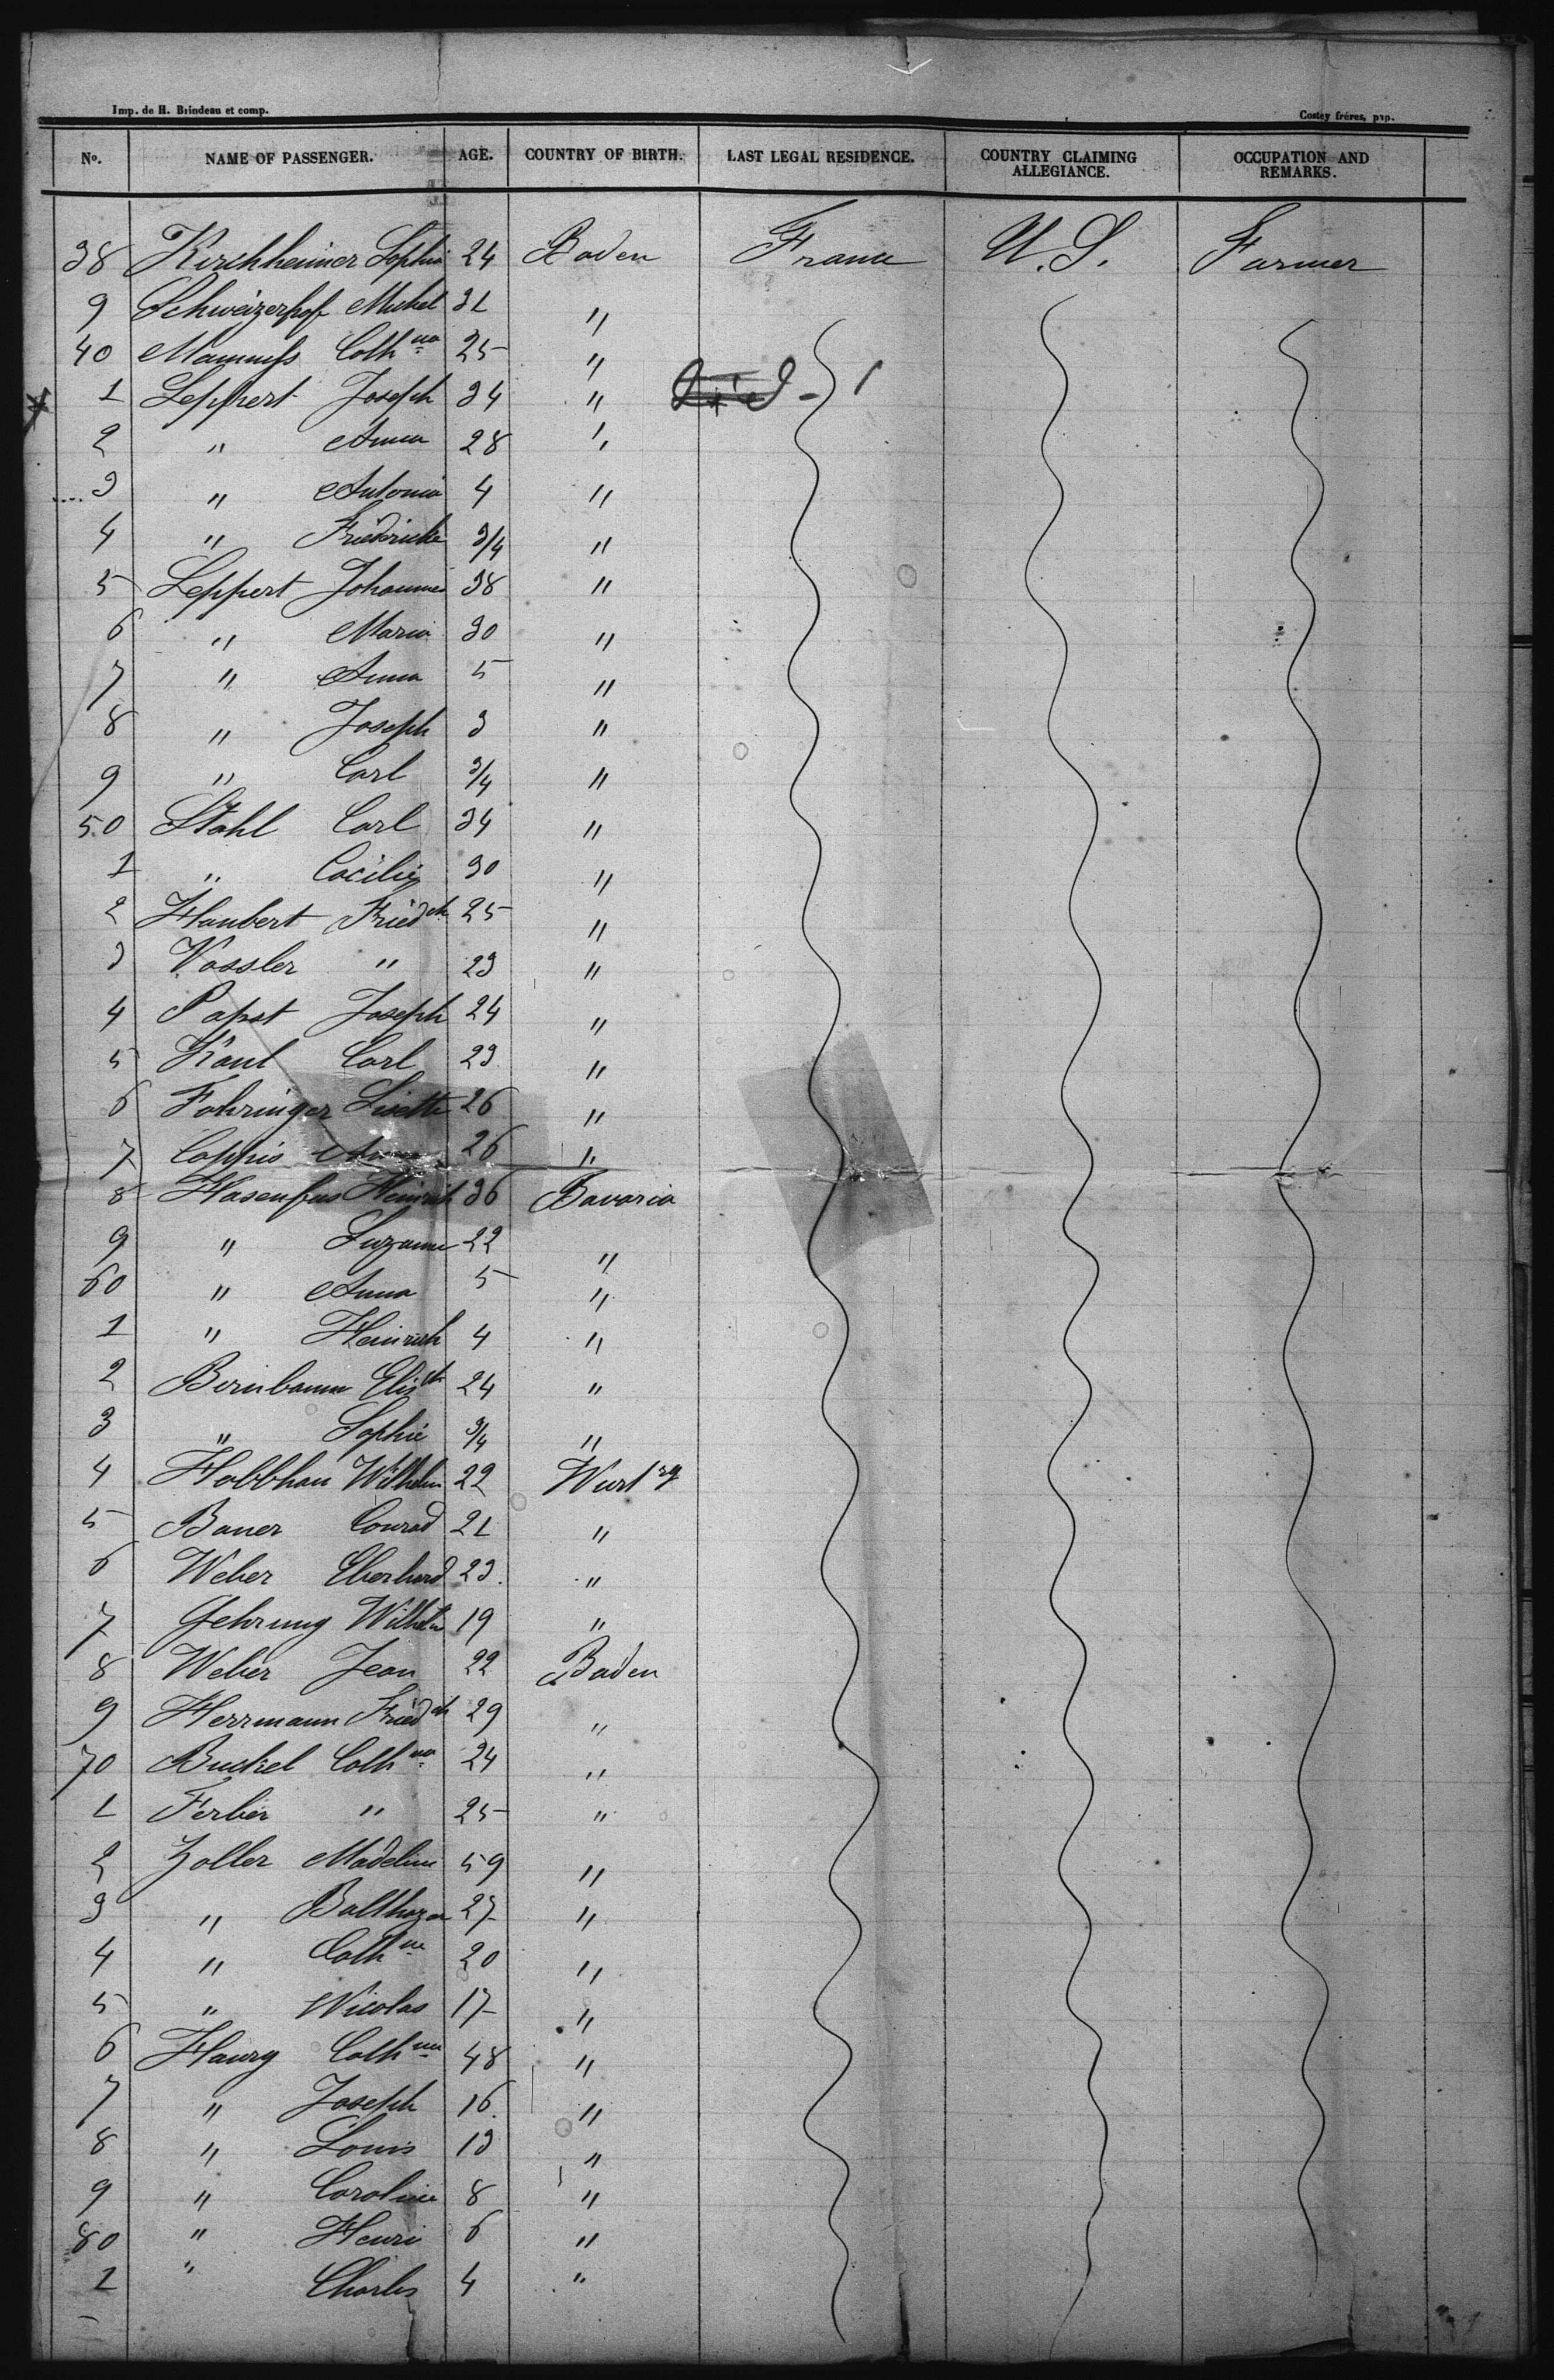 Imp. de H. Brindeau et comp. Costey fréres, pap.
No. NAME OF PASSENGER. AGE. COUNTRY OF BIRTH. LAST LEGAL RESIDENCE. COUNTRY CLAIMING ALLEGIANCE. OCCUPATION AND REMARKS.
38 Kirchheimer Sophie 24 Baden France U.S. Farmer
9 Schweizerhof Michel 31 "
40 Cath na 25 "
1 Leppert Joseph 34 " Died - 1
2 " Anna 28 "
3 " Antonia 4 "
4 " Friedricke 3/4 "
5 Leppert Johannes 38 "
6 " Maria 30 "
7 " Anna 5 "
8 " Joseph 3 "
9 " Carl 3/4 "
50 Stahl Carl 34 "
1 " Cacilie 30 "
2 Haubert Fried ch 25 "
3 Vossler " 23 "
4 Papst Joseph 24 "
5 Kaul Carl 23 "
6 Fohringer Lisette 26 "
7 Cappis Anna 26 "
8 Hasenfus Heinrich 36 Bavaria
9 " Suzanne 22 "
60 " Anna 5 "
1 " Heinrich 4 "
2 Birnbaum Elis th 24 "
3 " Sophie 3/4 "
4 Wilhelm 22 Wurt rg
5 Bauer Conrad 21 "
6 Weber Eberhard 23 "
7 Gehrung Wilhelm 19 "
8 Weber Jean 22 Baden
9 Herrmann Fried ch 29 "
70 Buckel Cath na 24 "
1 Ferber " 25 "
2 Zoller Madeline 59 "
3 " Balthazar 27 "
4 " Cath ne 20 "
5 " Nicolas 17 "
6 Haury Cath na 48 "
7 " Joseph 16 "
8 " Louis 13 "
9 " Caroline 8 "
80 " Henri 6 "
1 " Charles 4 "